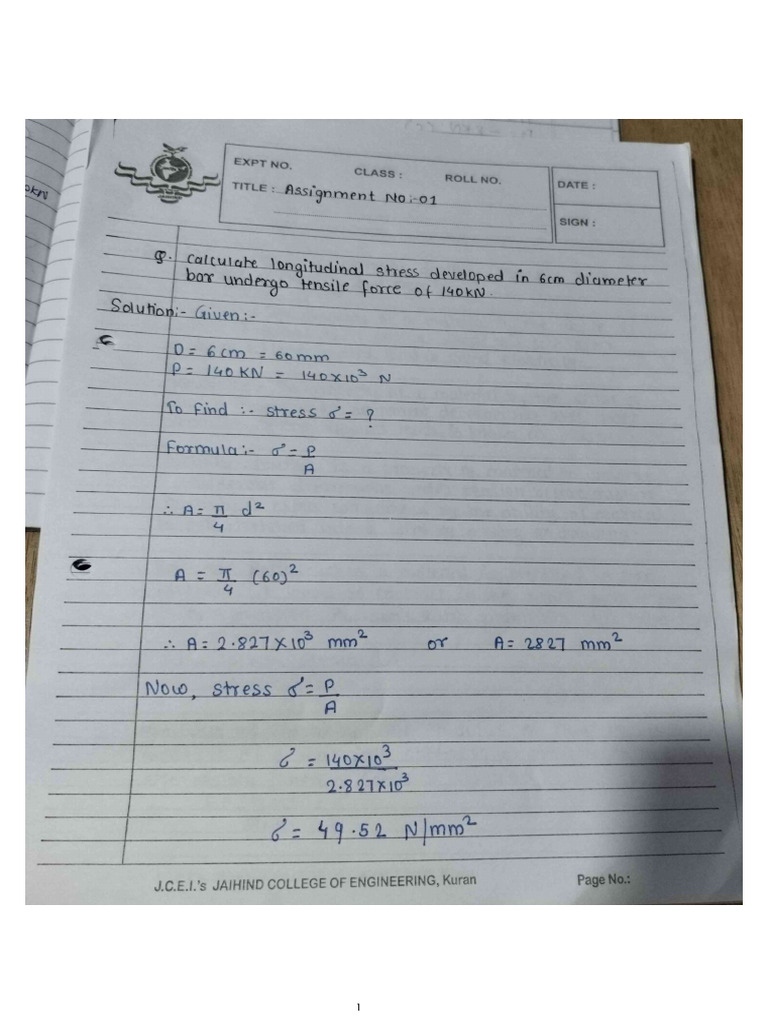 EXPT NO. CLASS : ROLL NO.
DATE :
TITLE : Assignment No:-01
SIGN :
Q. Calculate longitudinal stress developed in 6cm diameter
bar undergo tensile force of 140KN.
Solution:- Given:-
D = 6cm = 60mm
P = 140 KN = 140×10³ N
To find :- stress σ = ?
Formula:- σ = P/A
∴ A = π/4 d²
A = π/4 (60)²
∴ A = 2.827×10³ mm² or A = 2827 mm²
Now, stress σ = P/A
σ = 140×10³/2.827×10³
σ = 49.52 N/mm²
J.C.E.I.'s JAIHIND COLLEGE OF ENGINEERING, Kuran Page No.:
1